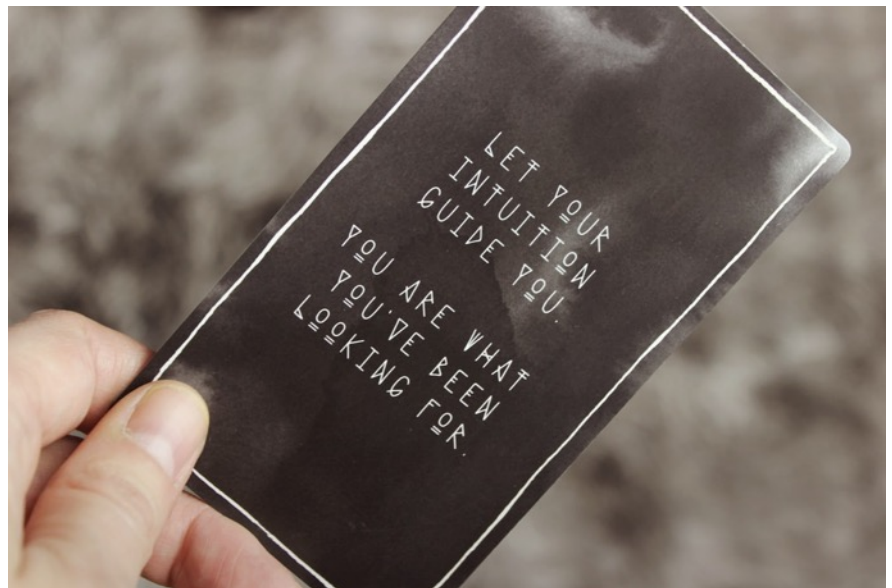 LET YOUR
INTUITION
GUIDE YOU.
YOU ARE WHAT
YOU'VE BEEN
LOOKING FOR.